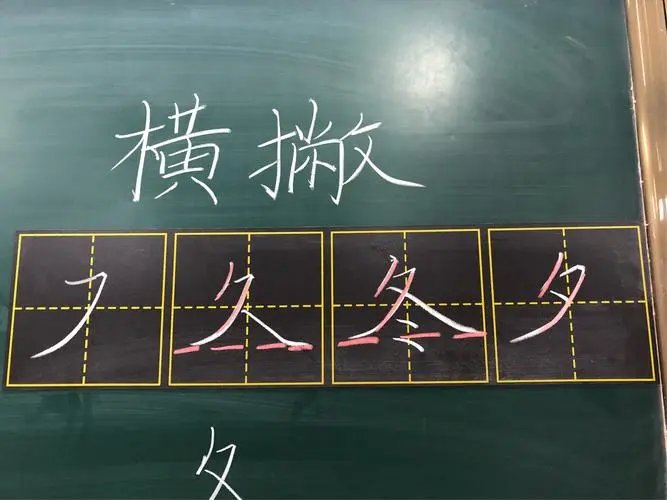 横撇
㇇ 久 冬 夕
夂